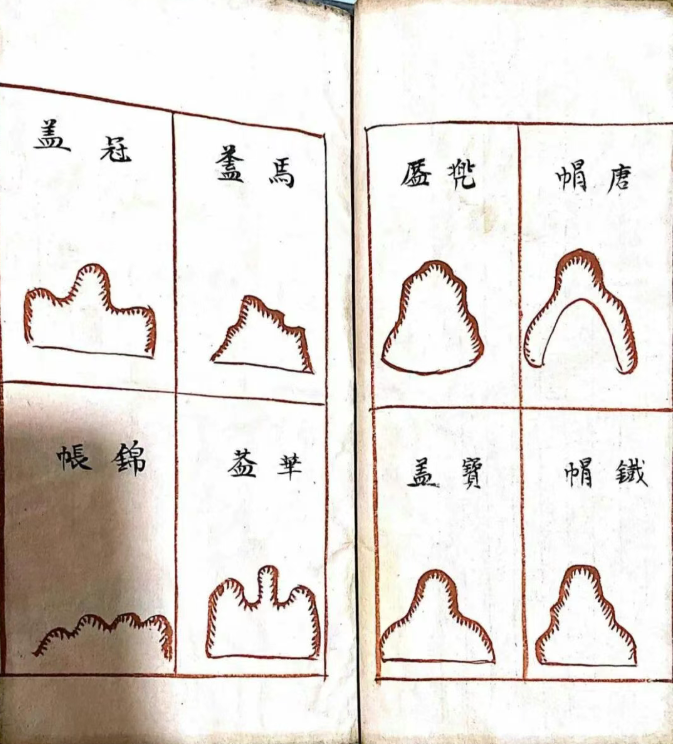 唐帽
兠盔
鐵帽
寶盖
馬蓋
冠盖
華葢
錦帳